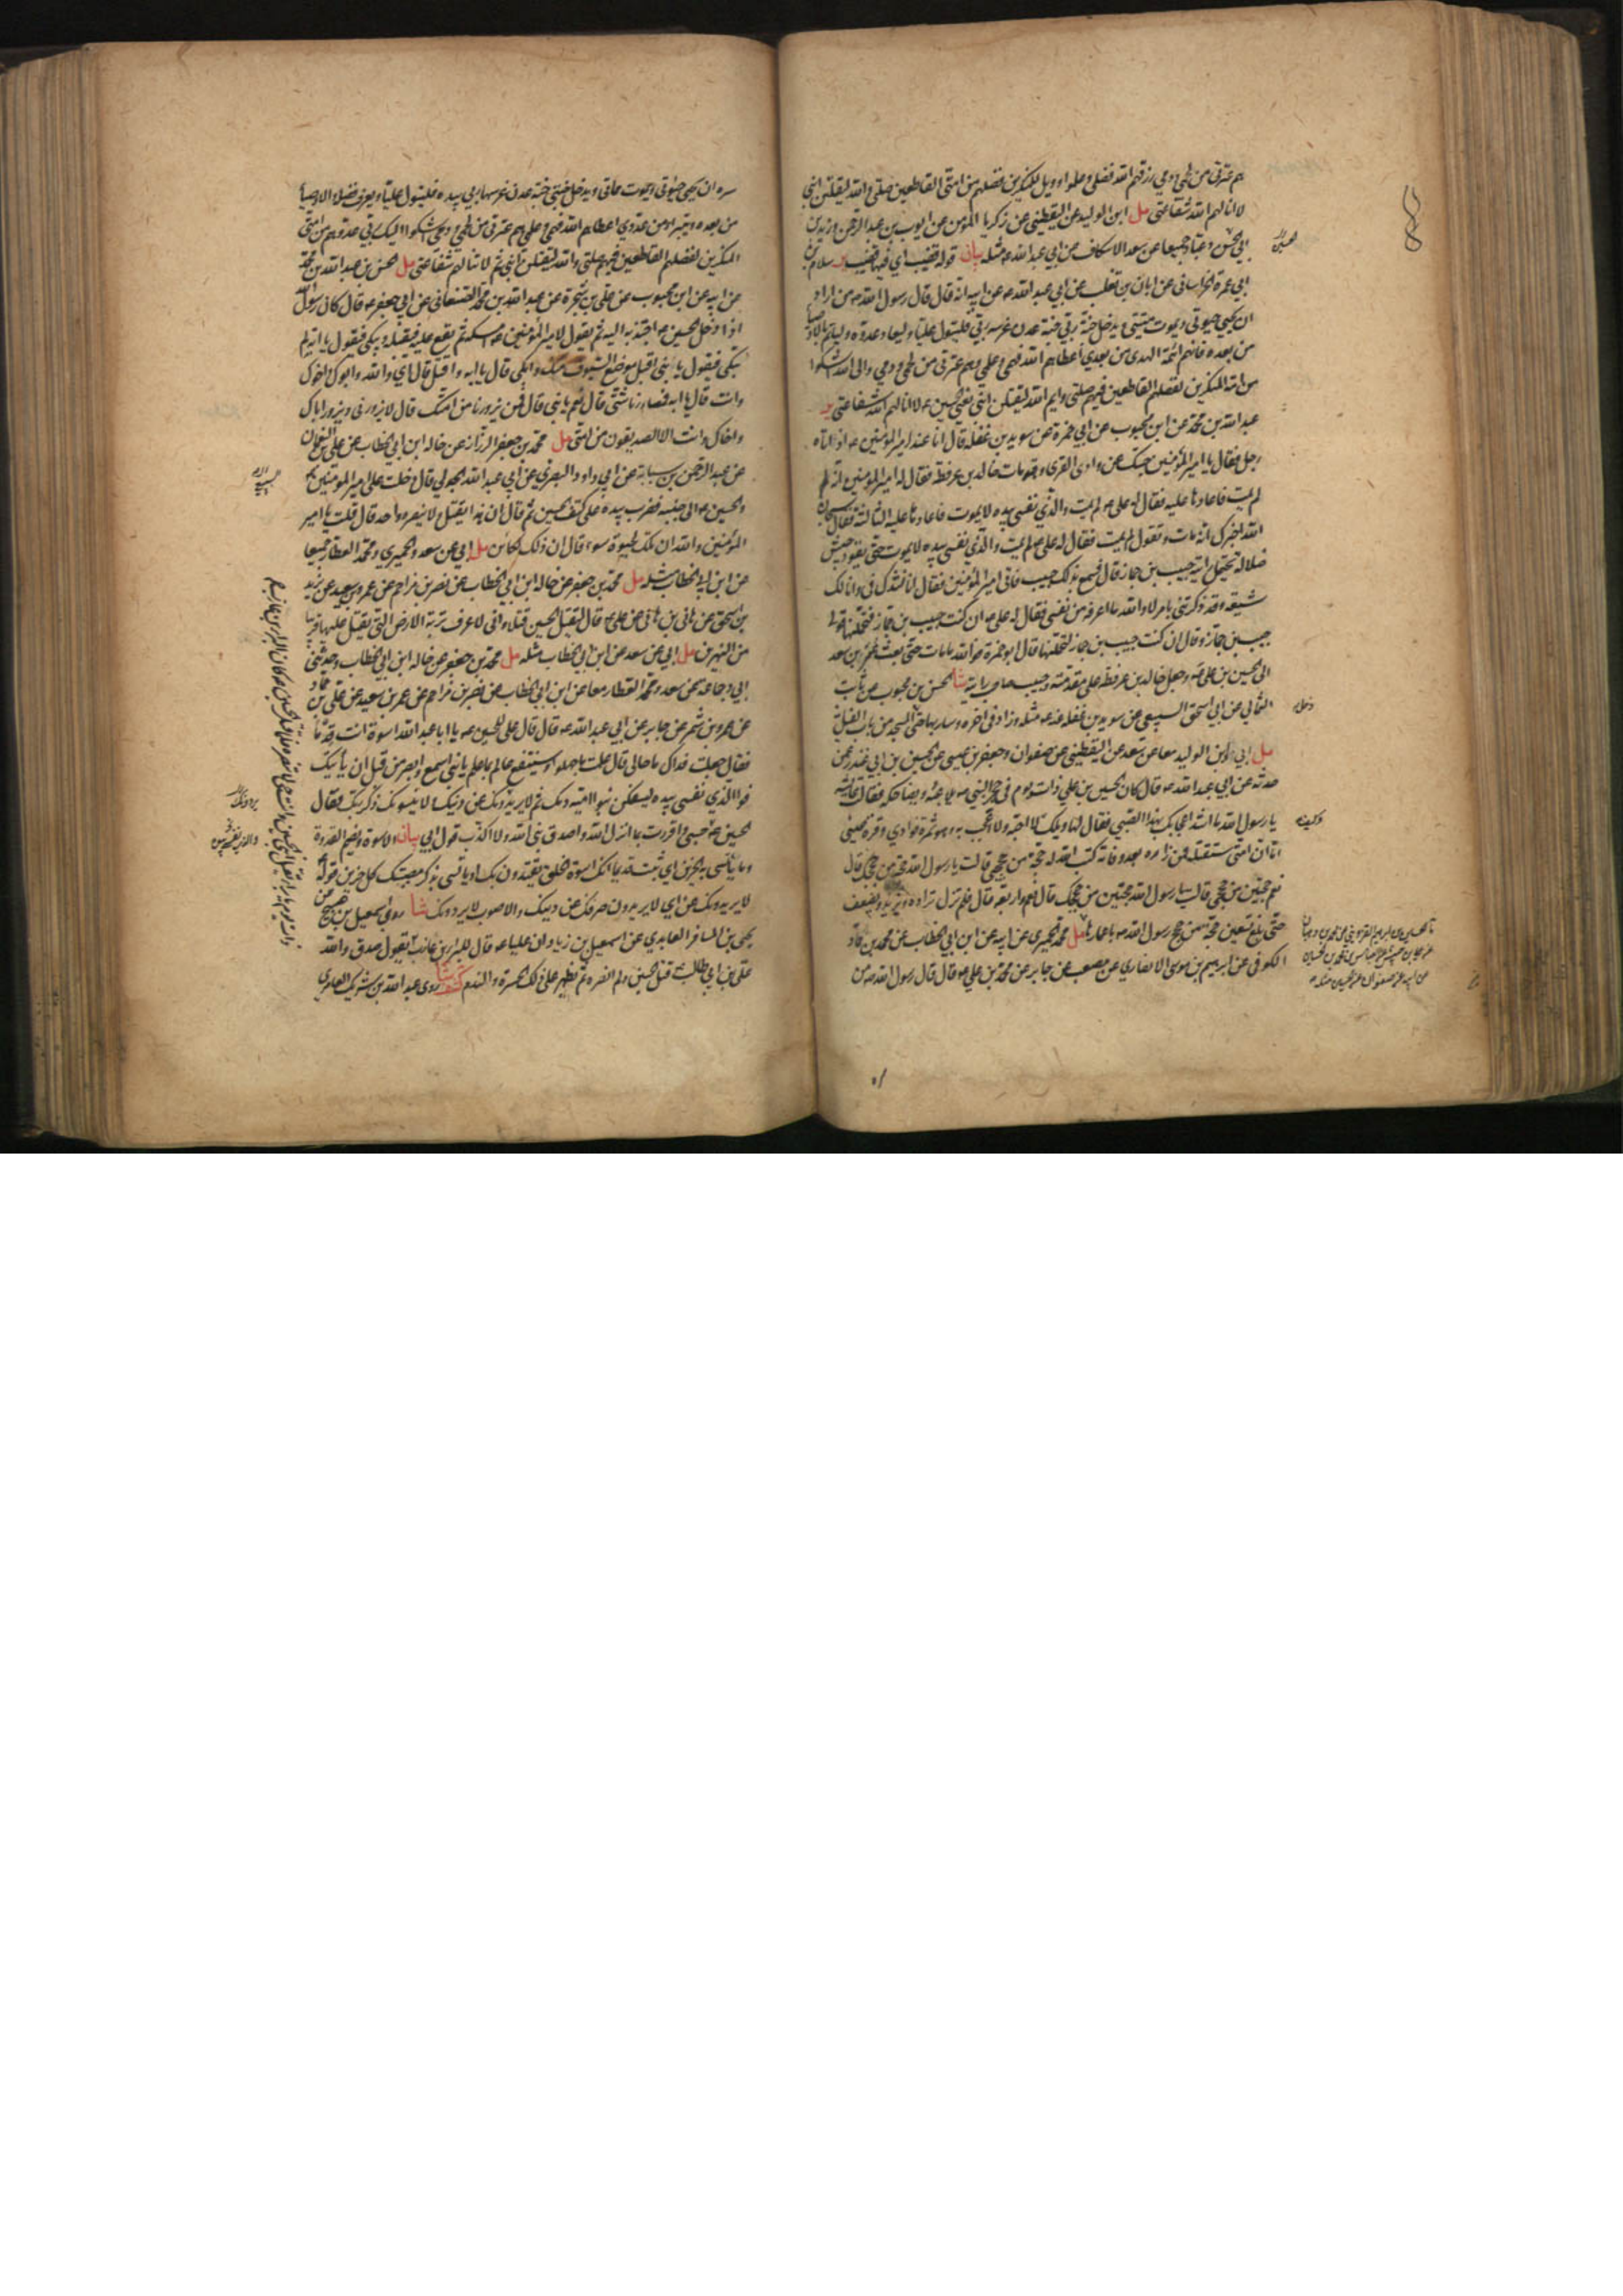 هم عترتي من لحمي ودمي رزقهم الله فضلي وعلمي وويل للمنكرين فضلهم من امتي القاطعين صلتي والله ليقتلن ابني
لا انالهم الله شفاعتي مل ابن الوليد عن اليقطيني عن زكريا المؤمن عن ايوب بن عبد الرحمن وزيد بن
ابي الحسن وعباد جميعا عن سعد الاسكاف عن ابي عبد الله ع مثله بيان قوله قضيب اي فيها قضيب ير سلام بن
ابي عمرة الخراساني عن ابان بن تغلب عن ابي عبد الله ع عن ابيه انه قال قال رسول الله ص من اراد
ان يحيي حيوتي ويموت ميتتي ويدخل جنة ربي جنة عدن غرسه ربي فليتول عليا وليعاد عدوه وليأتم بالاوصياء
من بعده فانهم ائمة الهدى من بعدي اعطاهم الله فهمي وعلمي وهم عترتي من لحمي ودمي والى الله اشكوا
من امتي المنكرين لفضلهم القاطعين فيهم صلتي وايم الله ليقتلن ابني يعني الحسين ع لا انالهم الله شفاعتي ير
عبد الله بن محمد عن ابن محبوب عن ابي حمزة عن سويد بن غفلة قال انا عند امير المؤمنين ع اذ اتاه
رجل فقال يا امير المؤمنين جئتك من وادي القرى وقد مات خالد بن عرفطة فقال له امير المؤمنين انه لم
يمت فاعادها عليه فقال له علي ع لم يمت والذي نفسي بيده لا يموت فاعادها عليه الثالثة فقال سبحان
الله اخبرك انه مات وتقول لم يمت فقال له علي ع لم يمت والذي نفسي بيده لا يموت حتى يقود جيش
ضلالة يحمل رايته حبيب بن جماز قال فسمع بذلك حبيب فاتى امير المؤمنين فقال له اناشدك في وانا لك
شيعة وقد ذكرتني بامر لا والله ما اعرفه من نفسي فقال له علي ع ان كنت حبيب بن جماز فتحملنها فولى
حبيب بن جماز وقال ان كنت حبيب بن جماز لتحملنها قال ابو حمزة فوالله ما مات حتى بعث عمر بن سعد
الى الحسين بن علي ع وجعل خالد بن عرفطة على مقدمته وحبيب صاحب رايته شا الحسن بن محبوب عن ثابت
الثمالي عن ابي اسحق السبيعي عن سويد بن غفلة عنه ع مثله وزاد في اخره وسار بها حتى دخل المسجد من باب الفيل
مل ابي وابن الوليد معا عن سعد عن اليقطيني عن صفوان وجعفر بن عيسى عن الحسين بن ابي غندر عمن
حدثه عن ابي عبد الله ع قال كان الحسين بن علي ذات يوم في حجر النبي ص يلاعبه ويضاحكه فقالت عايشة
يا رسول الله ما اشد اعجابك بهذا الصبي فقال لها ويلك وكيف لا احبه ولا اعجب به وهو ثمرة فوادي وقرة عيني
اما ان امتي ستقتله فمن زاره بعد وفاته كتب الله له حجة من حججي قالت يا رسول الله حجة من حججك قال
نعم حجتين من حججي قالت يا رسول الله حجتين من حججك قال نعم واربعة قال فلم تزل تزاده ويزيد ويضعف
حتى بلغ تسعين حجة من حجج رسول الله ص باعمارها مل محمد الحميري عن ابيه عن ابن ابي الخطاب عن محمد بن حماد
الكوفي عن ابرهيم بن موسى الانصاري عن مصعب عن جابر عن محمد بن علي ع قال قال رسول الله ص من
سره ان يحيي حيوتي ويموت مماتي ويدخل جنتي جنة عدن غرسها ربي بيده فليتول عليا ويعرف فضله والاوصياء
من بعده ويتبرأ من عدوي اعطاهم الله فهمي وعلمي هم عترتي من لحمي ودمي اشكوا اليك ربي عدوهم من امتي
المنكرين لفضلهم القاطعين فيهم صلتي والله ليقتلن ابني ثم لا تنالهم شفاعتي مل الحسن بن عبد الله بن محمد
عن ابيه عن ابن محبوب عن علي بن شجرة عن عبد الله بن محمد الصنعاني عن ابي جعفر ع قال كان رسول الله
اذا دخل الحسين ع اجتذبه اليه ثم يقول لامير المؤمنين ع امسكه ثم يقع عليه فيقبله ويبكي فيقول يا ابه لم
تبكي فيقول يا بني اقبل موضع السيوف منك وابكي قال يا ابه واقتل قال اي والله وابوك واخوك
وانت قال يا ابه فمصارعنا شتى قال نعم يا بني قال فمن يزورنا من امتك قال لا يزورني ويزور اباك
واخاك وانت الا الصديقون من امتي مل محمد بن جعفر الرزاز عن خاله ابن ابي الخطاب عن علي بن النعمان
عن عبد الرحمن بن سيابة عن ابي داود البصري عن ابي عبد الله الجدلي قال دخلت على امير المؤمنين ع
والحسين ع الى جنبه فضرب بيده على كتف الحسين ثم قال ان هذا يقتل ولا ينصره احد قال قلت يا امير
المؤمنين والله ان تلك لحيوة سوء قال ان ذلك لكائن مل ابي عن سعد والحميري ومحمد العطار جميعا
عن ابن ابي الخطاب مثله مل محمد بن جعفر عن خاله ابن ابي الخطاب عن نصر بن مزاحم عن عمرو بن سعيد عن يزيد
بن اسحق عن هاني بن هاني عن علي ع قال ليقتل الحسين قتلا واني لاعرف تربة الارض التي يقتل عليها قريبا
من النهرين مل ابي عن سعد عن ابن ابي الخطاب مثله مل محمد بن جعفر عن خاله ابن ابي الخطاب وحدثني
ابي وجماعة عن سعد ومحمد العطار معا عن ابن ابي الخطاب عن نصر بن مزاحم عن عمر بن سعيد عن علي بن حماد
عن عمرو بن شمر عن جابر عن ابي عبد الله ع قال قال علي للحسين ع يا ابا عبد الله اسوة انت قدما
فقال جعلت فداك ما حالي قال علمت ما جهلوا وسينتفع عالم بما علم يا بني اسمع وابصر من قبل ان يأتيك
فوالذي نفسي بيده ليسفكن بنو امية دمك ثم لا يريدونك عن دينك ولا ينسونك ذكر ربك فقال
الحسين ع والذي نفسي بيده حسبي واقررت بما انزل الله واصدق نبي الله ولا اكذب قول ابي بيان الاسوة ويضم القدوة
وما يأتسي به الحزين اي ثبت قديما انك اسوة الخلق يقتدون بك او يأتسي بذكر مصيبتك كل حزين قوله
لا يريدونك عن اي لا يريدون صرفك عن دينك والاصوب لا يردونك شا روى اسمعيل بن صبيح عن
يحيى بن المسافر العابدي عن اسمعيل بن زياد ان عليا ع قال للبراء بن عازب
يقول صدق والله
علي بن ابي طالب قتل الحسين ولم انصره ثم يظهر على ذلك الحسرة والندم كشف شا روى عبد الله بن شريك العامري